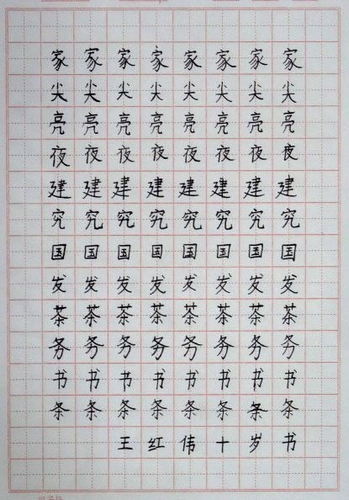 家家家家家家家家
尖尖尖尖尖尖尖尖
亮亮亮亮亮亮亮亮
夜夜夜夜夜夜夜夜
建建建建建建建建
究究究究究究究究
国国国国国国国国
发发发发发发发发
茶茶茶茶茶茶茶茶
务务务务务务务务
书书书书书书书书
条条条条条条条条
王红伟十岁书